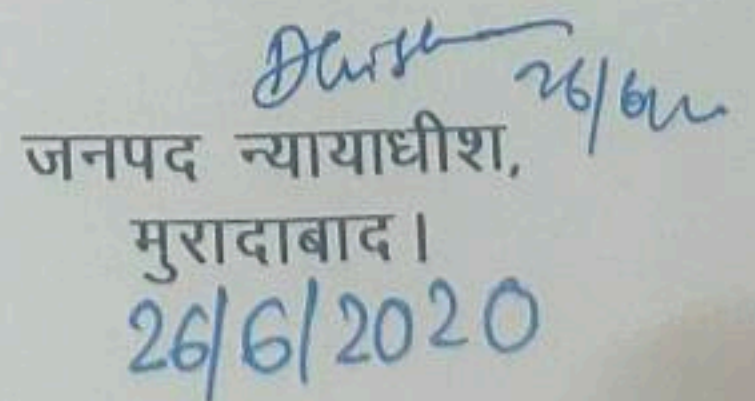 26/6/
जनपद न्यायाधीश,
मुरादाबाद।
26/6/2020